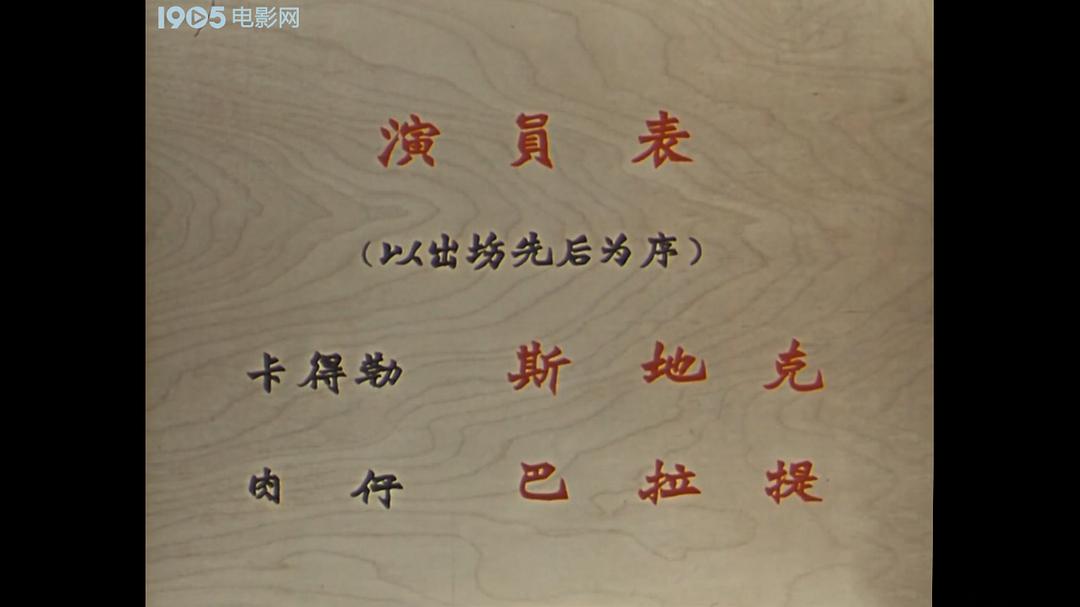 1905电影网
演員表
（以出场先后为序）
卡得勒 斯地克
肉仔 巴拉提